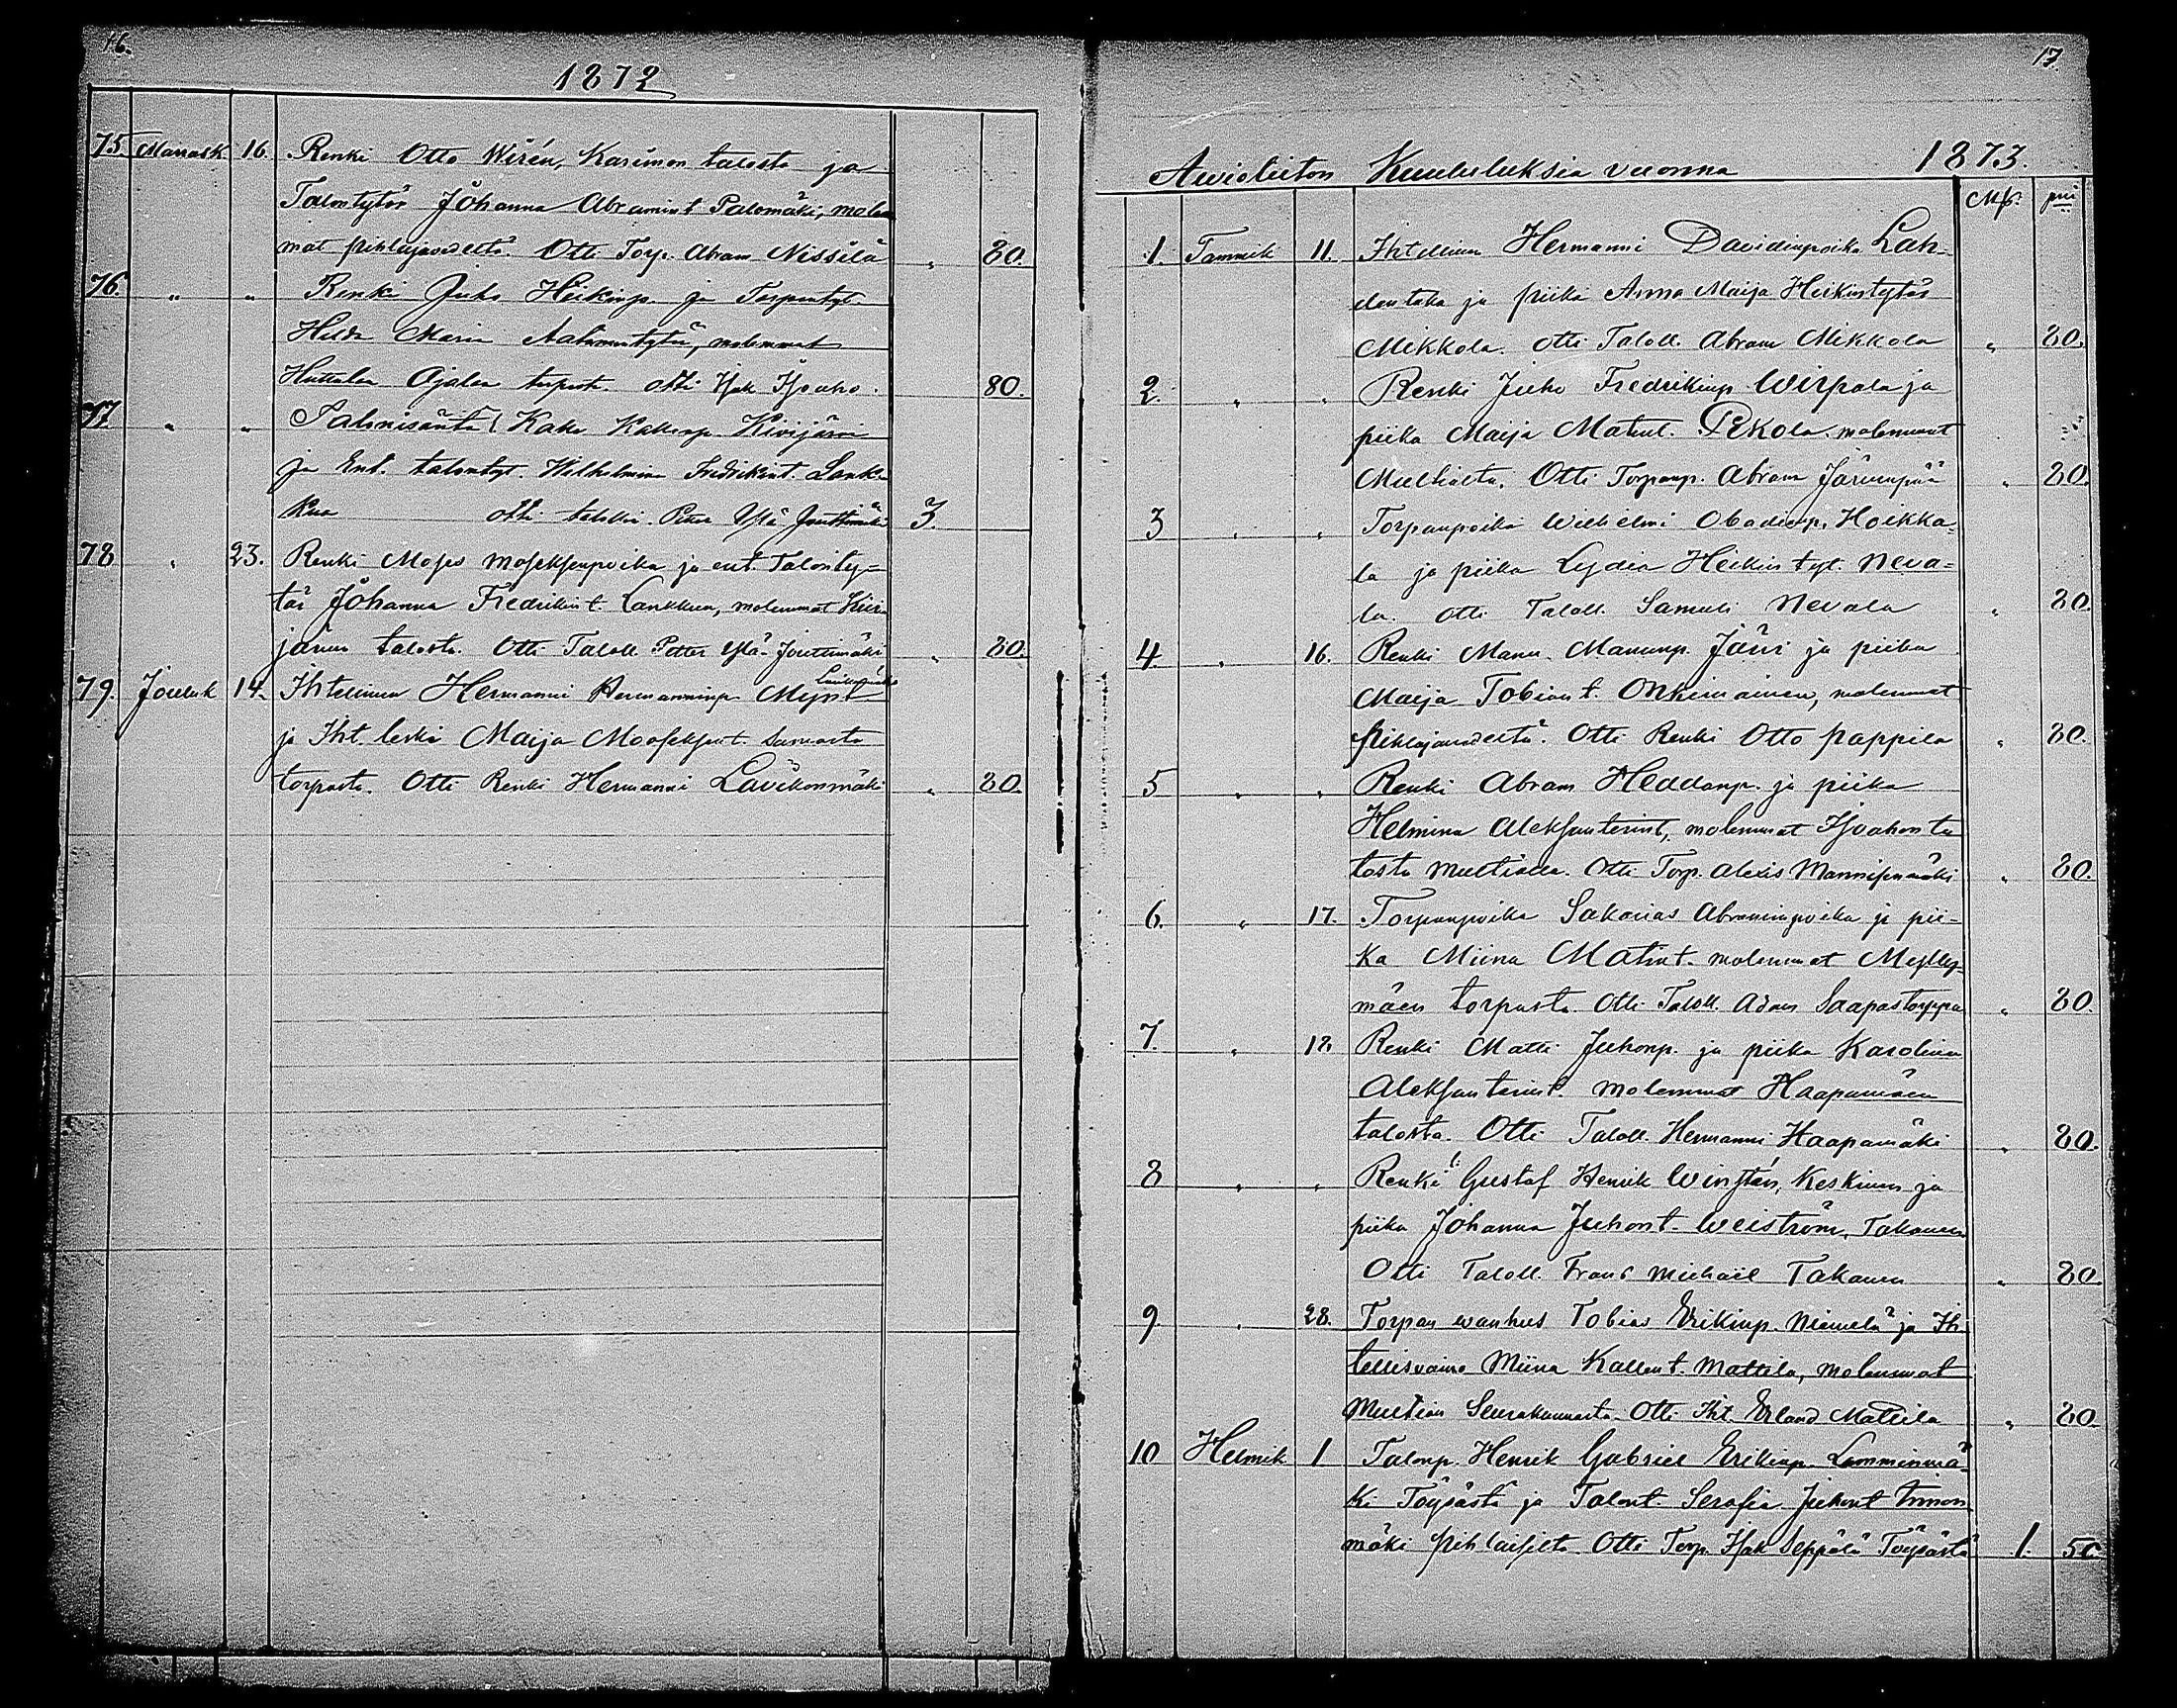 16.
1872
75. Marrask 16. Renki Otto Wirén, Karimon talosta ja
Talontytär Johanna Abramint Palomäki, molem
mat pihlajavedeltä. Otti Torp. Abram Nissilä " 80.
76. " " Renki Juho Heikinp. ja Torpantyt.
Hilda Maria Aatamintytär, molemmat
Huttulan Ajalan torpast. otti Isak Isoaho. 80.
77 " " Talonisäntä Kalle Kallenp. Kivijärvi
ja Ent. talontyt. Wilhelmina Fredrikint. Lank-
kua otti talolli. Petter Ylä Jouttimäki 3.
78 " 23. Renki Moses Moseksenpoika ja ent. Talonty-
tär Johanna Fredrikint. Lankkua, molemmat Kivi-
järven talosta. Otti Taloll. Petter Ylä-Jouttimäki " 80.
79. Jouluk 14. Itstellinen Hermanni Hermanninp. Myst
ja Itst. leski Maija Mooseksent.
torpasta. Otti Renki Hermanni Lavikonmäki " 80.
17.
Awioliiton Kuulutuksia vuonna 1873.
Mk. pni
1. Tammik 11. Itstellinen Hermanni Davidinpoika Lah-
dentaka ja piika Anna Maija Heikintytär
Mikkola. otti Taloll. Abram Mikkola " 80.
2. " " Renki Juho Fredrikinp Wirpala ja
piika Maija Matint. Pekola. molemmat
Multialta. Otti Torpanp. Abram Järvenpää " 80.
3 " " Torpanpoika Wilhelmi Obadianp. Hoikka-
la ja piika Lydia Heikintyt. Neva-
la. otti Taloll. Samuli Nevala " 80.
4 " 16. Renki Manu Manunp. Järvi ja piika
Maija Tobiant. Onkimainen, molemmat
Pihlajavedeltä. Otti Renki Otto Pappila " 80.
5 " " Renki Abram Heddanp. ja piika
Helmina Aleksanterint, molemmat Isoahon ta
losta Multialla. Otti Torp. Alexis Mannisenmäki " 80.
6. " 17. Torpanpoika Sakarias Abraminpoika ja pii-
ka Miina Matint. molemmat Mylly-
mäen torpasta. Otti Taloll. Adam Saapastorppa " 80.
7. " 18. Renki Matti Juhonp. ja piika Karolina
Aleksanterint. molemmat Haapamäen
talosta. Otti Taloll. Hermanni Haapamäki " 80.
8 " " Renki Gustaf Henrik Winstén, Keskinen ja
piika Johanna Juhont. Weiström, Takanen
Otti Taloll. Frans Michaël Takanen " 80.
9 " 28. Torpan wanhus Tobias Erikinp. Niemelä ja It-
tellisvaimo Miina Kallent. Mattila, molemmat
Multian Seurakunnasta. Otti Itst. Erland Mattila " 80.
10 Helmik 1 Talonp. Henrik Gabriel Erikinp. Lamminmä-
ki Töysästä ja Talont. Serafia Juhont
mäki Otti Torp. Isak Seppälä Töysästä 1. 50.